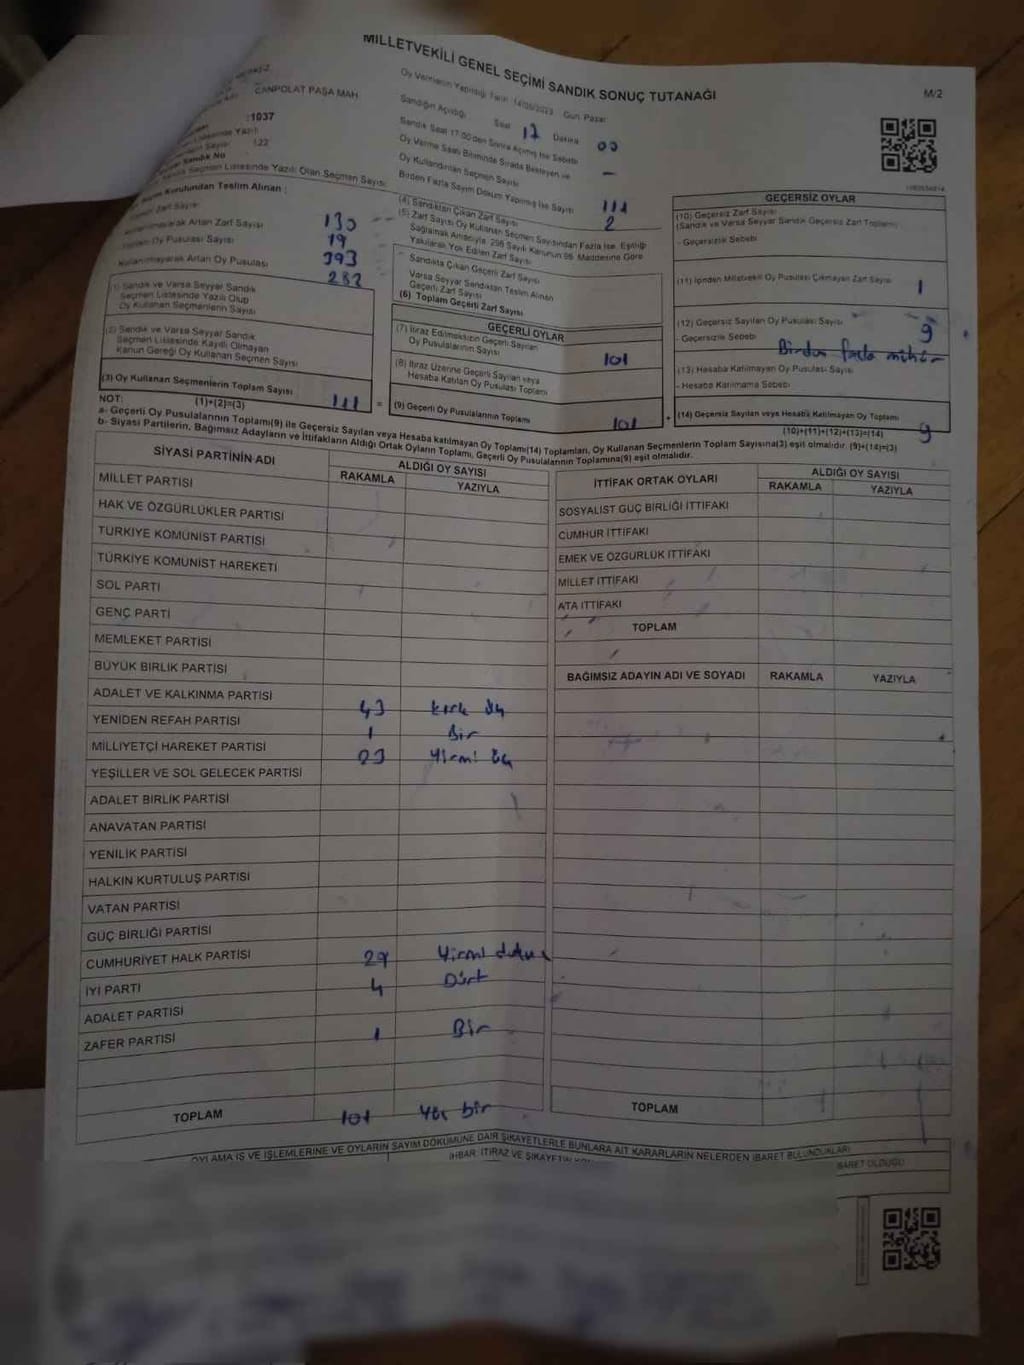 MİLLETVEKİLİ GENEL SEÇİMİ SANDIK SONUÇ TUTANAĞI
M/2
CANPOLAT PAŞA MAH.
:1037
122
Sandık No
Seçmen Listesinde Yazılı Olan Seçmen Sayısı
Kurulundan Teslim Alınan :
Zarf Sayısı 130
Kullanılmayarak Artan Zarf Sayısı 19
Oy Pusulası Sayısı 393
Kullanılmayarak Artan Oy Pusulası 282
(1) Sandık ve Varsa Seyyar Sandık
Seçmen Listesinde Yazılı Olup
Oy Kullanan Seçmenlerin Sayısı
(2) Sandık ve Varsa Seyyar Sandık
Seçmen Listesinde Kayıtlı Olmayan
Kanun Gereği Oy Kullanan Seçmen Sayısı
(3) Oy Kullanan Seçmenlerin Toplam Sayısı
(1)+(2)=(3) 111 =
Oy Vermenin Yapıldığı Tarih: 14/05/2023 Gün: Pazar
Sandığın Açıldığı Saat 17 Dakika 00
Sandık Saat 17:00'den Sonra Açılmış İse Sebebi
Oy Verme Saati Bitiminde Sırada Bekleyen ve
Oy Kullandırılan Seçmen Sayısı –
Birden Fazla Sayım Döküm Yapılmış İse Sayısı
(4) Sandıktan Çıkan Zarf Sayısı 111
(5) Zarf Sayısı Oy Kullanan Seçmen Sayısından Fazla İse, Eşitliği 2
Sağlamak Amacıyla, 298 Sayılı Kanunun 98. Maddesine Göre
Yakılarak Yok Edilen Zarf Sayısı
Sandıkta Çıkan Geçerli Zarf Sayısı
Varsa Seyyar Sandıktan Teslim Alınan
Geçerli Zarf Sayısı
(6) Toplam Geçerli Zarf Sayısı
GEÇERLİ OYLAR
(7) İtiraz Edilmeksizin Geçerli Sayılan
Oy Pusulalarının Sayısı 101
(8) İtiraz Üzerine Geçerli Sayılan veya
Hesaba Katılan Oy Pusulası Toplamı
(9) Geçerli Oy Pusulalarının Toplamı 101 +
GEÇERSİZ OYLAR
(10) Geçersiz Zarf Sayısı
(Sandık ve Varsa Seyyar Sandık Geçersiz Zarf Toplamı)
- Geçersizlik Sebebi
(11) İçinden Milletvekili Oy Pusulası Çıkmayan Zarf Sayısı 1
(12) Geçersiz Sayılan Oy Pusulası Sayısı 9
- Geçersizlik Sebebi Birden fazla mühür
(13) Hesaba Katılmayan Oy Pusulası Sayısı
- Hesaba Katılmama Sebebi
(14) Geçersiz Sayılan veya Hesaba Katılmayan Oy Toplamı
(10)+(11)+(12)+(13)=(14) 9
NOT:
a- Geçerli Oy Pusulalarının Toplamı(9) ile Geçersiz Sayılan veya Hesaba katılmayan Oy Toplamı(14) Toplamları, Oy Kullanan Seçmenlerin Toplam Sayısına(3) eşit olmalıdır. (9)+(14)=(3)
b- Siyasi Partilerin, Bağımsız Adayların ve İttifakların Aldığı Ortak Oyların Toplamı, Geçerli Oy Pusulalarının Toplamına(9) eşit olmalıdır.
SİYASİ PARTİNİN ADI
ALDIĞI OY SAYISI
RAKAMLA YAZIYLA
MİLLET PARTİSİ
HAK VE ÖZGÜRLÜKLER PARTİSİ
TÜRKİYE KOMÜNİST PARTİSİ
TÜRKİYE KOMÜNİST HAREKETİ
SOL PARTİ
GENÇ PARTİ
MEMLEKET PARTİSİ
BÜYÜK BİRLİK PARTİSİ
ADALET VE KALKINMA PARTİSİ 43 kırk üç
YENİDEN REFAH PARTİSİ 1 Bir
MİLLİYETÇİ HAREKET PARTİSİ 23 Yirmi üç
YEŞİLLER VE SOL GELECEK PARTİSİ
ADALET BİRLİK PARTİSİ
ANAVATAN PARTİSİ
YENİLİK PARTİSİ
HALKIN KURTULUŞ PARTİSİ
VATAN PARTİSİ
GÜÇ BİRLİĞİ PARTİSİ
CUMHURİYET HALK PARTİSİ 29 Yirmi dokuz
İYİ PARTİ 4 Dört
ADALET PARTİSİ
ZAFER PARTİSİ 1 Bir
TOPLAM 101 Yüz bir
İTTİFAK ORTAK OYLARI
ALDIĞI OY SAYISI
RAKAMLA YAZIYLA
SOSYALİST GÜÇ BİRLİĞİ İTTİFAKI
CUMHUR İTTİFAKI
EMEK VE ÖZGÜRLÜK İTTİFAKI
MİLLET İTTİFAKI
ATA İTTİFAKI
TOPLAM
BAĞIMSIZ ADAYIN ADI VE SOYADI RAKAMLA YAZIYLA
TOPLAM
OYLAMA İŞ VE İŞLEMLERİNE VE OYLARIN SAYIM DÖKÜMÜNE DAİR ŞİKAYETLERLE BUNLARA AİT KARARLARIN NELERDEN İBARET BULUNDUKLARI
İHBAR, İTİRAZ VE ŞİKAYETİN
İBARET OLDUĞU